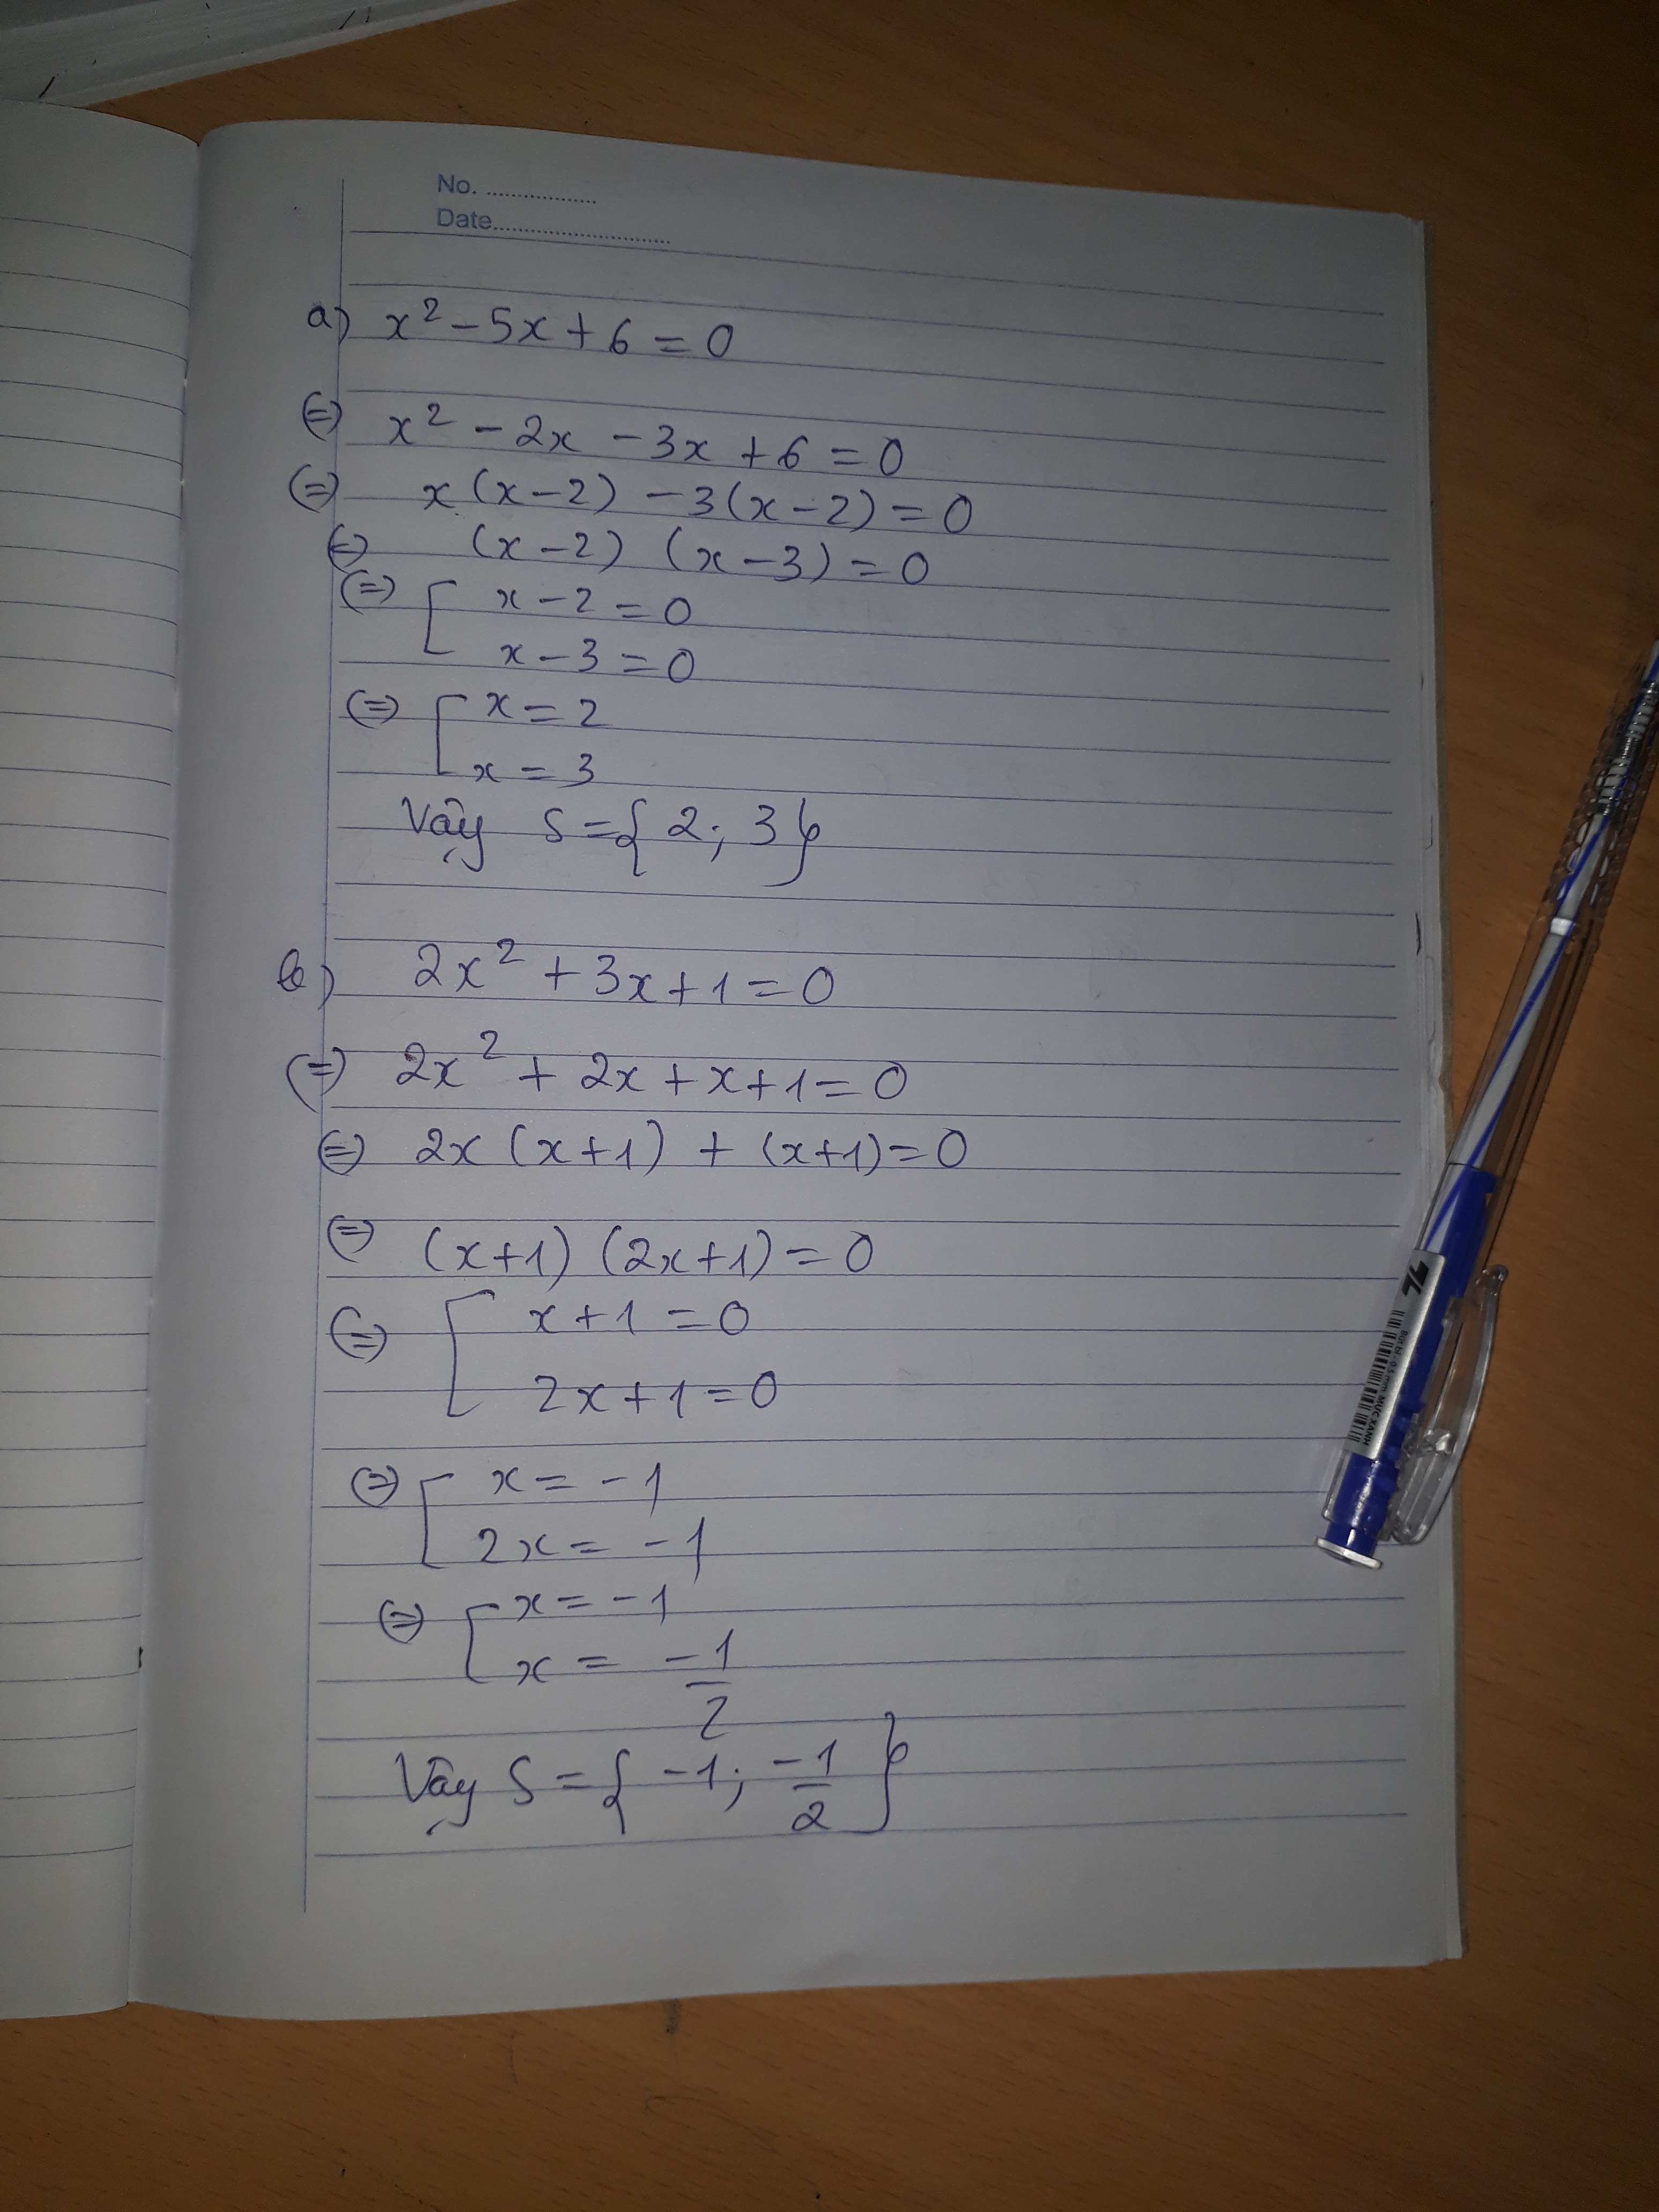 No. ..................
Date.............................
a) x² - 5x + 6 = 0
(=) x² - 2x - 3x + 6 = 0
(=) x (x - 2) - 3(x - 2) = 0
(=) (x - 2) (x - 3) = 0
(=) [ x - 2 = 0
x - 3 = 0
(=) [ x = 2
x = 3
Vậy S = { 2; 3 }
b) 2x² + 3x + 1 = 0
(=) 2x² + 2x + x + 1 = 0
(=) 2x (x + 1) + (x + 1) = 0
(=) (x + 1) (2x + 1) = 0
(=) [ x + 1 = 0
2x + 1 = 0
(=) [ x = - 1
2x = - 1
(=) [ x = - 1
x = -1/2
Vậy S = { -1; -1/2 }
TL
Bút bi - 0.5 mm MỰC XANH